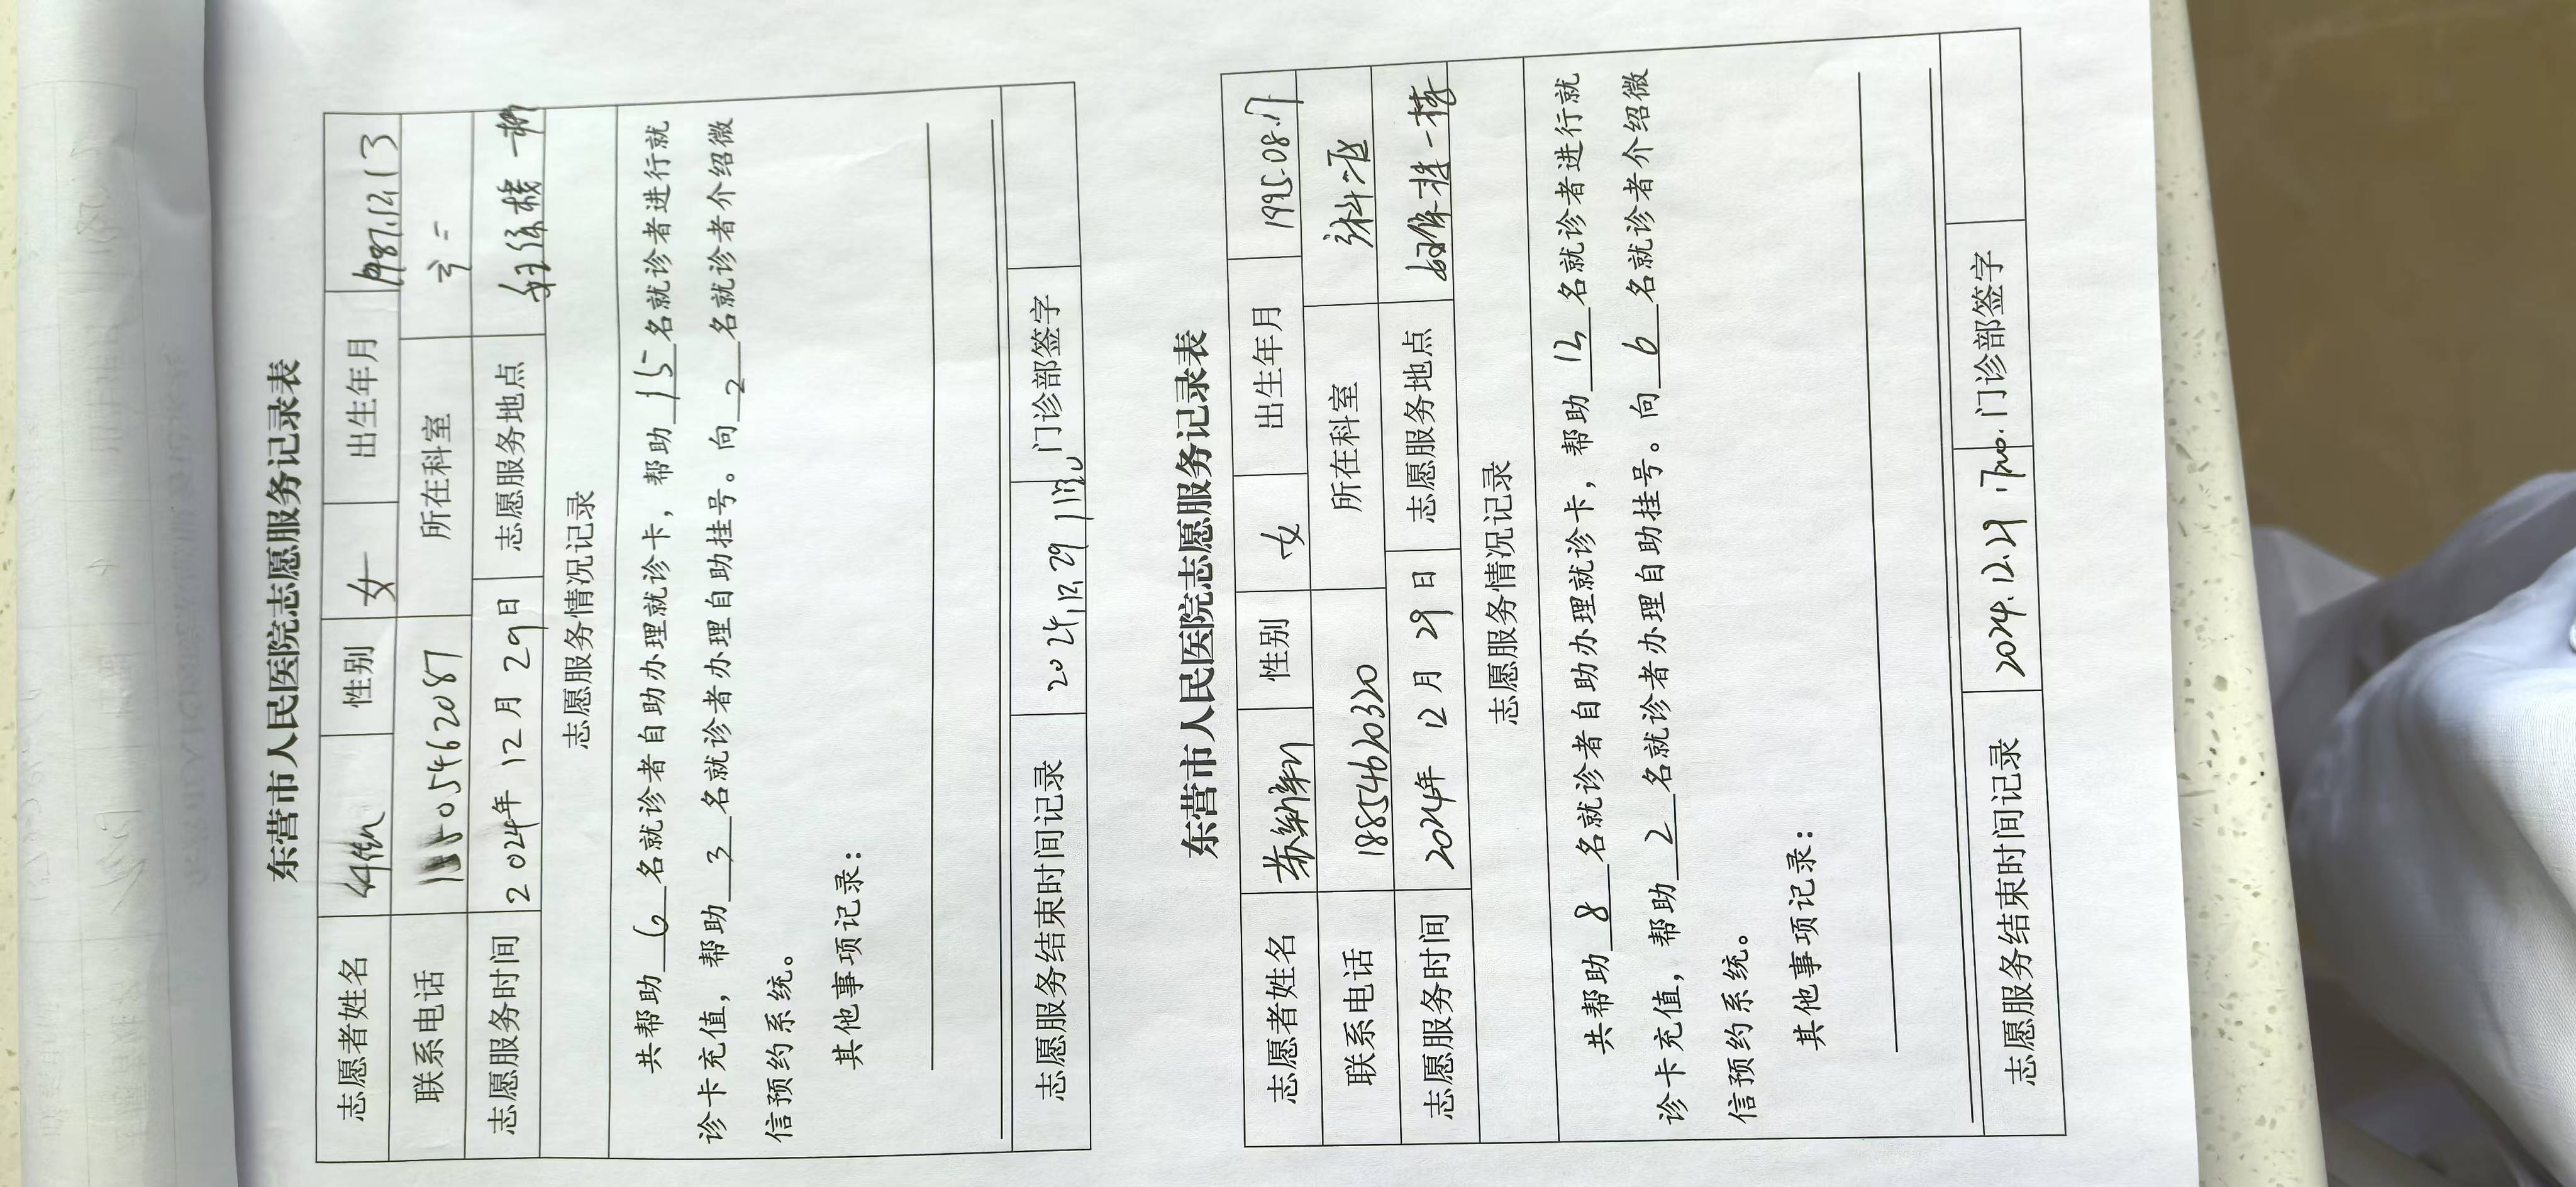 东营市人民医院志愿服务记录表
志愿者姓名 性别 女 出生年月 1987.12.13
联系电话 所在科室
志愿服务时间 2024年 12月 29日 志愿服务地点
志愿服务情况记录
共帮助 6 名就诊者自助办理就诊卡，帮助 15 名就诊者进行就
诊卡充值，帮助 3 名就诊者办理自助挂号。向 2 名就诊者介绍微
信预约系统。
其他事项记录：
志愿服务结束时间记录 门诊部签字
东营市人民医院志愿服务记录表
志愿者姓名 性别 女 出生年月 1995.08.17
联系电话 18854620320 所在科室
志愿服务时间 2024年 12月 29日 志愿服务地点
志愿服务情况记录
共帮助 8 名就诊者自助办理就诊卡，帮助 12 名就诊者进行就
诊卡充值，帮助 2 名就诊者办理自助挂号。向 6 名就诊者介绍微
信预约系统。
其他事项记录：
志愿服务结束时间记录 门诊部签字